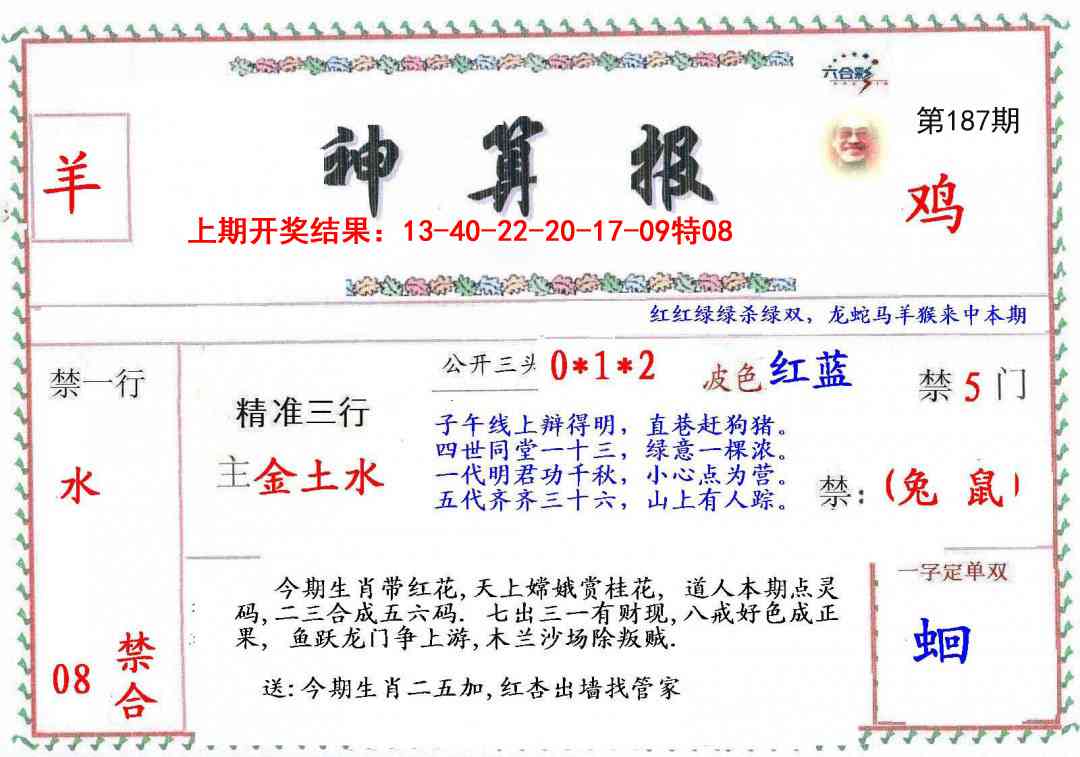 六合彩
第187期
羊
神算报
鸡
上期开奖结果：13-40-22-20-17-09特08
红红绿绿杀绿双，龙蛇马羊猴来中本期
禁一行
水
08
禁合
精准三行
主金土水
公开三头 0*1*2
波色 红蓝
子午线上辩得明，直巷赶狗猪。
四世同堂一十三，绿意一棵浓。
一代明君功千秋，小心点为营。
五代齐齐三十六，山上有人踪。
禁5门
禁：(兔 鼠)
今期生肖带红花,天上嫦娥赏桂花, 道人本期点灵
码,二三合成五六码. 七出三一有财现,八戒好色成正
果, 鱼跃龙门争上游,木兰沙场除叛贼.
送:今期生肖二五加,红杏出墙找管家
一字定单双
蛔